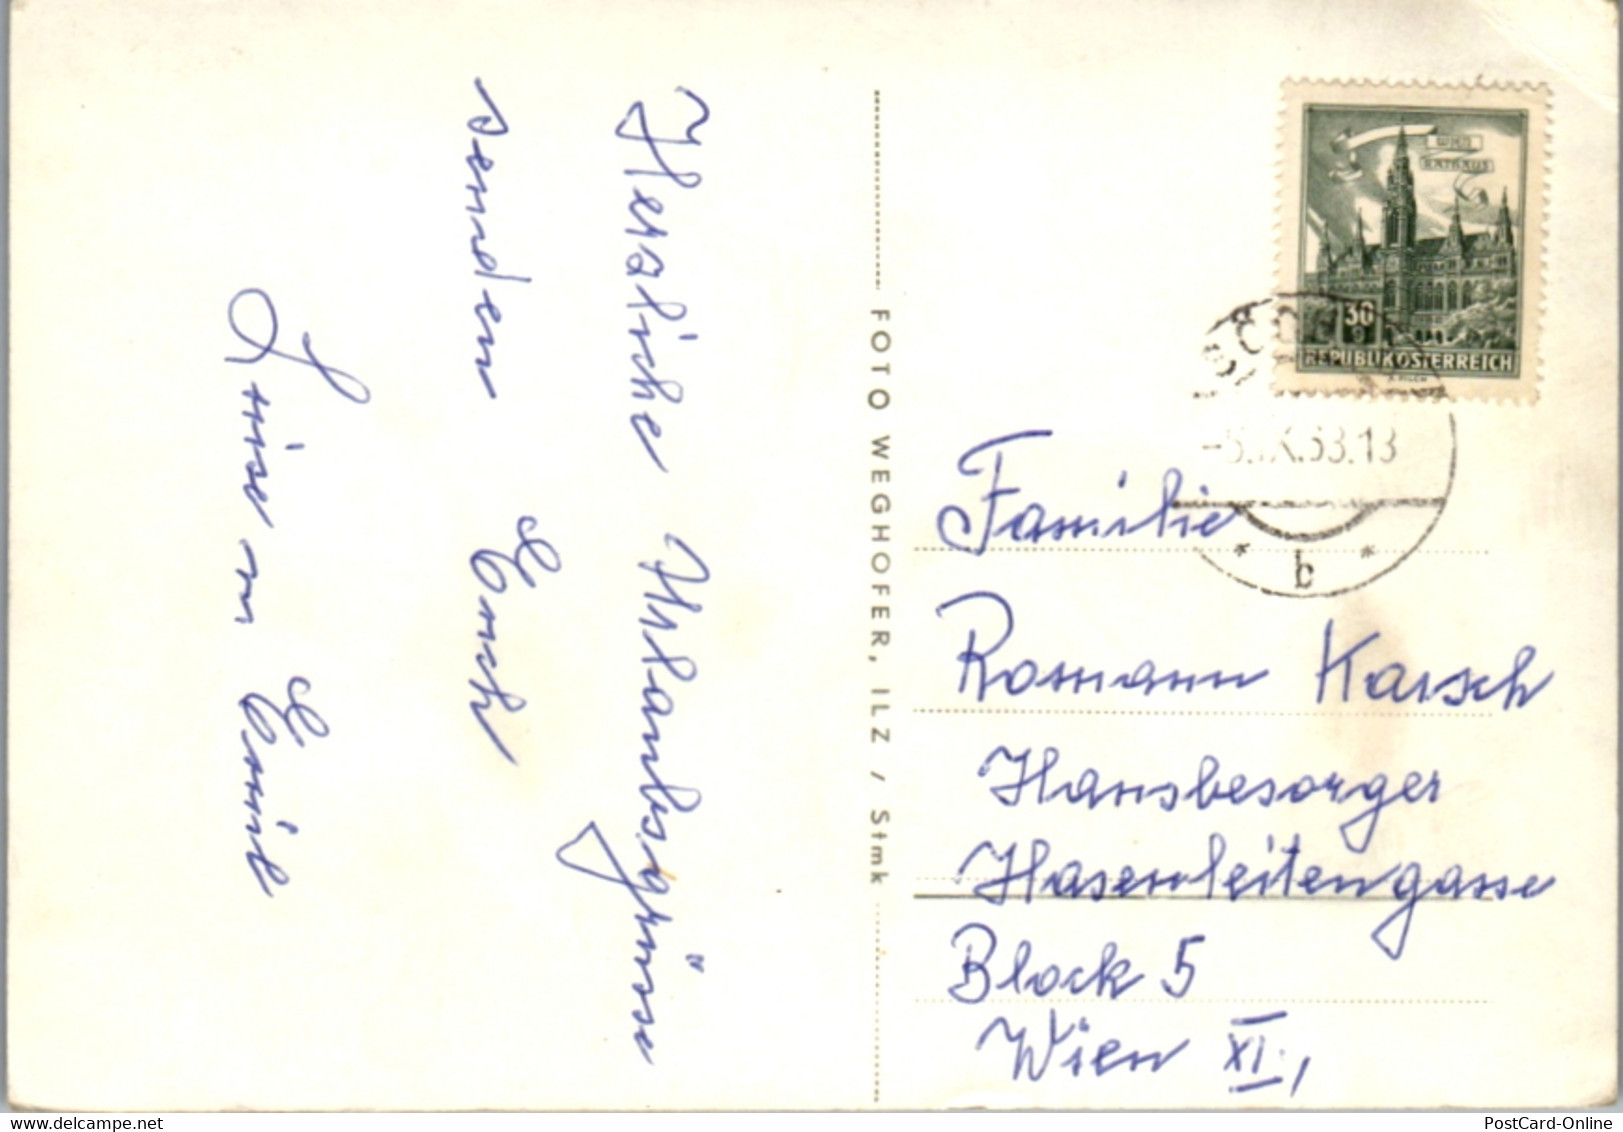 Herzliche Urlaubsgrüsse
senden Euch
Luise u Emil
FOTO WEGHOFER, ILZ / Stmk
WIEN
RATHAUS
30
REPUBLIK ÖSTERREICH
b
Familie
Romann Karsch
Hausbesorger
Hasenleitengasse
Block 5
Wien XI,
PostCard-Online